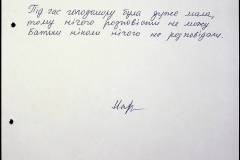 Під час голодомору була дуже мала,
тому нічого розповісти не можу
Батьки ніколи нічого не розповідали.